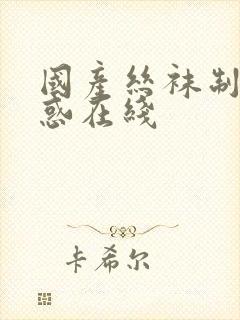 國產絲袜制
惑在綫
卡希尔